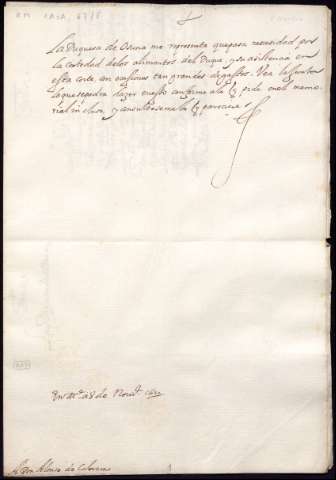 La Duquesa de Osuna me representa que pasa necesidad por
la cortedad de los alimentos del Duque, y su asistencia en
esta corte, en ocasiones tan grandes de gastos. Vea la Junta
lo que se podra hazer en esto conforme a lo q pide en el memo
rial incluso, y consulteseme lo q pareciere
En M.d a 8 de Nou.e
A Don Alonso de Cabrera